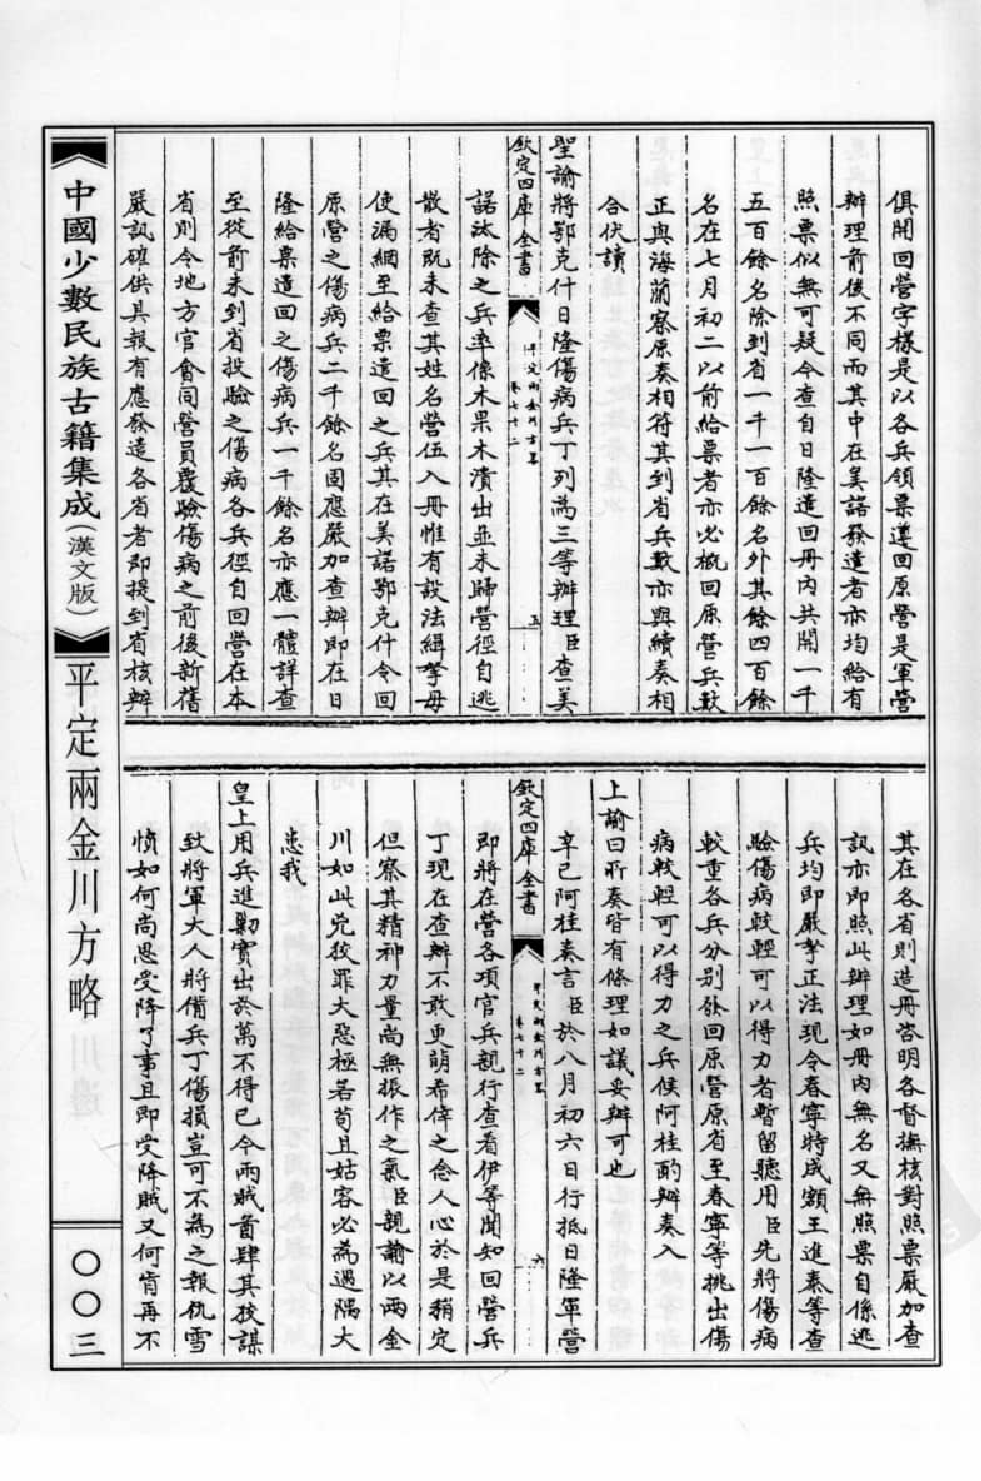 俱開回營字樣是以各兵領票遵回原營是軍營
辦理前後不同而其中在美諾發遣者亦均給有
照票似無可疑今查自日隆遣回冊內共開一千
五百餘名除到省一千一百餘名外其餘四百餘
名在七月初二以前給票者亦必概回原營兵數
正與海蘭察原奏相符其到省兵數亦與續奏相
合伏讀
聖諭將鄂克什日隆傷病兵丁列為三等辦理臣查美
欽定四庫全書
卷七十二
五
諾汰除之兵率係木果木潰出並未歸營徑自逃
散者既未查其姓名營伍入冊惟有設法緝拏毋
使漏網至給票遣回之兵其在美諾鄂克什令回
原營之傷病兵二千餘名固應嚴加查辦即在日
隆給票遣回之傷病兵一千餘名亦應一體詳查
至從前未到省投驗之傷病各兵徑自回營在本
省則令地方官會同營員覆驗傷病之前後新舊
嚴訊確供具報有應發遣各省者即提到省核辦
其在各省則造冊咨明各督撫核對照票嚴加查
訊亦即照此辦理如冊內無名又無照票自係逃
兵均即嚴拏正法現令春寧特成額王進泰等查
驗傷病較輕可以得力者暫留聽用臣先將傷病
較重各兵分別飭回原營原省至春寧等挑出傷
病較輕可以得力之兵候阿桂酌辦奏入
上諭曰所奏皆有條理如議妥辦可也
辛已阿桂奏言臣於八月初六日行抵日隆軍營
欽定四庫全書
卷七十二
六
即將在營各項官兵親行查看伊等聞知回營兵
丁現在查辦不敢更萌希倖之念人心於是稍定
但察其精神力量尚無振作之氣臣親諭以兩金
川如此兇狡罪大惡極若苟且姑容必為邊隅大
患我
皇上用兵進勦實出於萬不得已今兩賊酋肆其狡謀
致將軍大人將備兵丁傷損豈可不為之報仇雪
憤如何尚思受降了事且即受降賊又何肯再不
中國少數民族古籍集成(漢文版)
平定兩金川方略
〇〇三